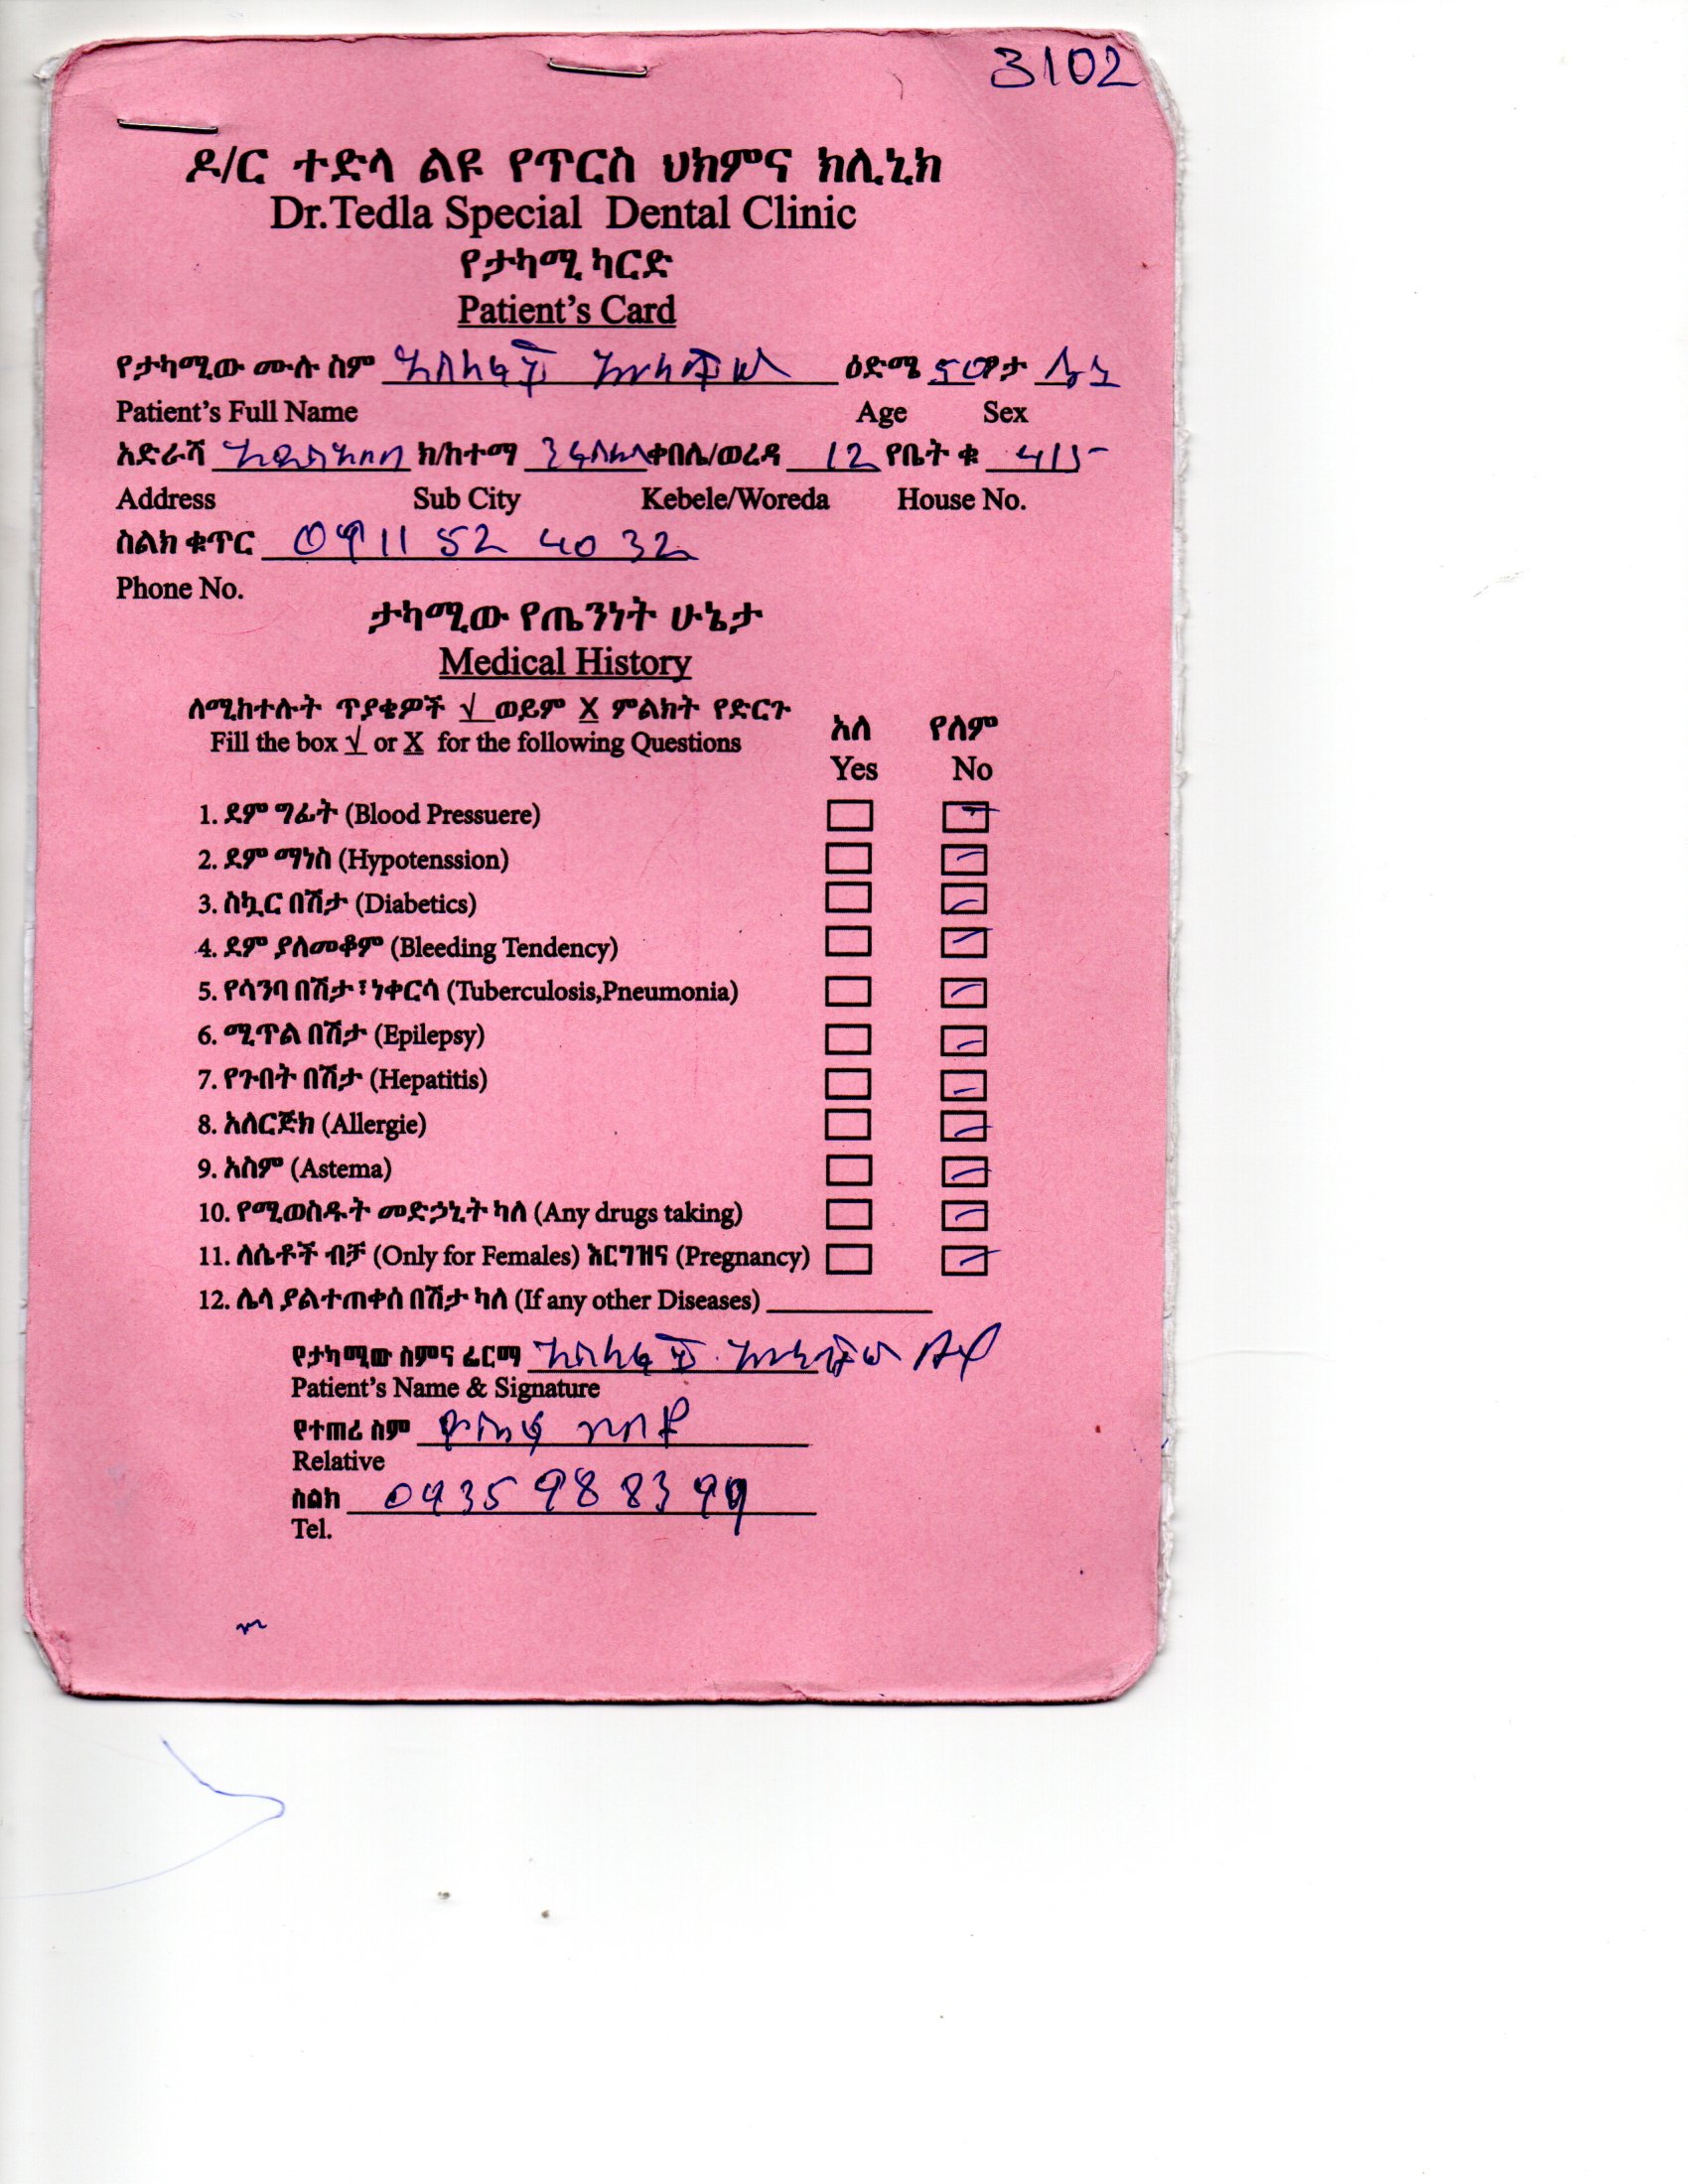 3102
ዶ/ር ተድላ ልዩ የጥርስ ህክምና ክሊኒክ
Dr.Tedla Special Dental Clinic
የታካሚ ካርድ
Patient's Card
የታካሚው ሙሉ ስም አሰለፈች ዕድሜ ዓመታ
Patient's Full Name Age Sex
አድራሻ አዲስ አበባ ክ/ከተማ ን/ስ/ላ ቀበሌ/ወረዳ 12 የቤት ቁ 415
Address Sub City Kebele/Woreda House No.
ስልክ ቁጥር 0911 52 40 32
Phone No.
ታካሚው የጤንነት ሁኔታ
Medical History
ለሚከተሉት ጥያቄዎች √ ወይም X ምልክት የድርጉ
Fill the box √ or X for the following Questions
አለ የለም
Yes No
1. ደም ግፊት (Blood Pressuere)
2. ደም ማነስ (Hypotenssion)
3. ስኳር በሽታ (Diabetics)
4. ደም ያለመቆም (Bleeding Tendency)
5. የሳንባ በሽታ፣ ነቀርሳ (Tuberculosis,Pneumonia)
6. ሚጥል በሽታ (Epilepsy)
7. የጉበት በሽታ (Hepatitis)
8. አለርጅክ (Allergie)
9. አስም (Astema)
10. የሚወስዱት መድኃኒት ካለ (Any drugs taking)
11. ለሴቶች ብቻ (Only for Females) እርግዝና (Pregnancy)
12. ሌላ ያልተጠቀሰ በሽታ ካለ (If any other Diseases)
የታካሚው ስምና ፊርማ አሰለፈች
Patient's Name & Signature
የተጠሪ ስም
Relative
ስልክ 0935 98 83 99
Tel.